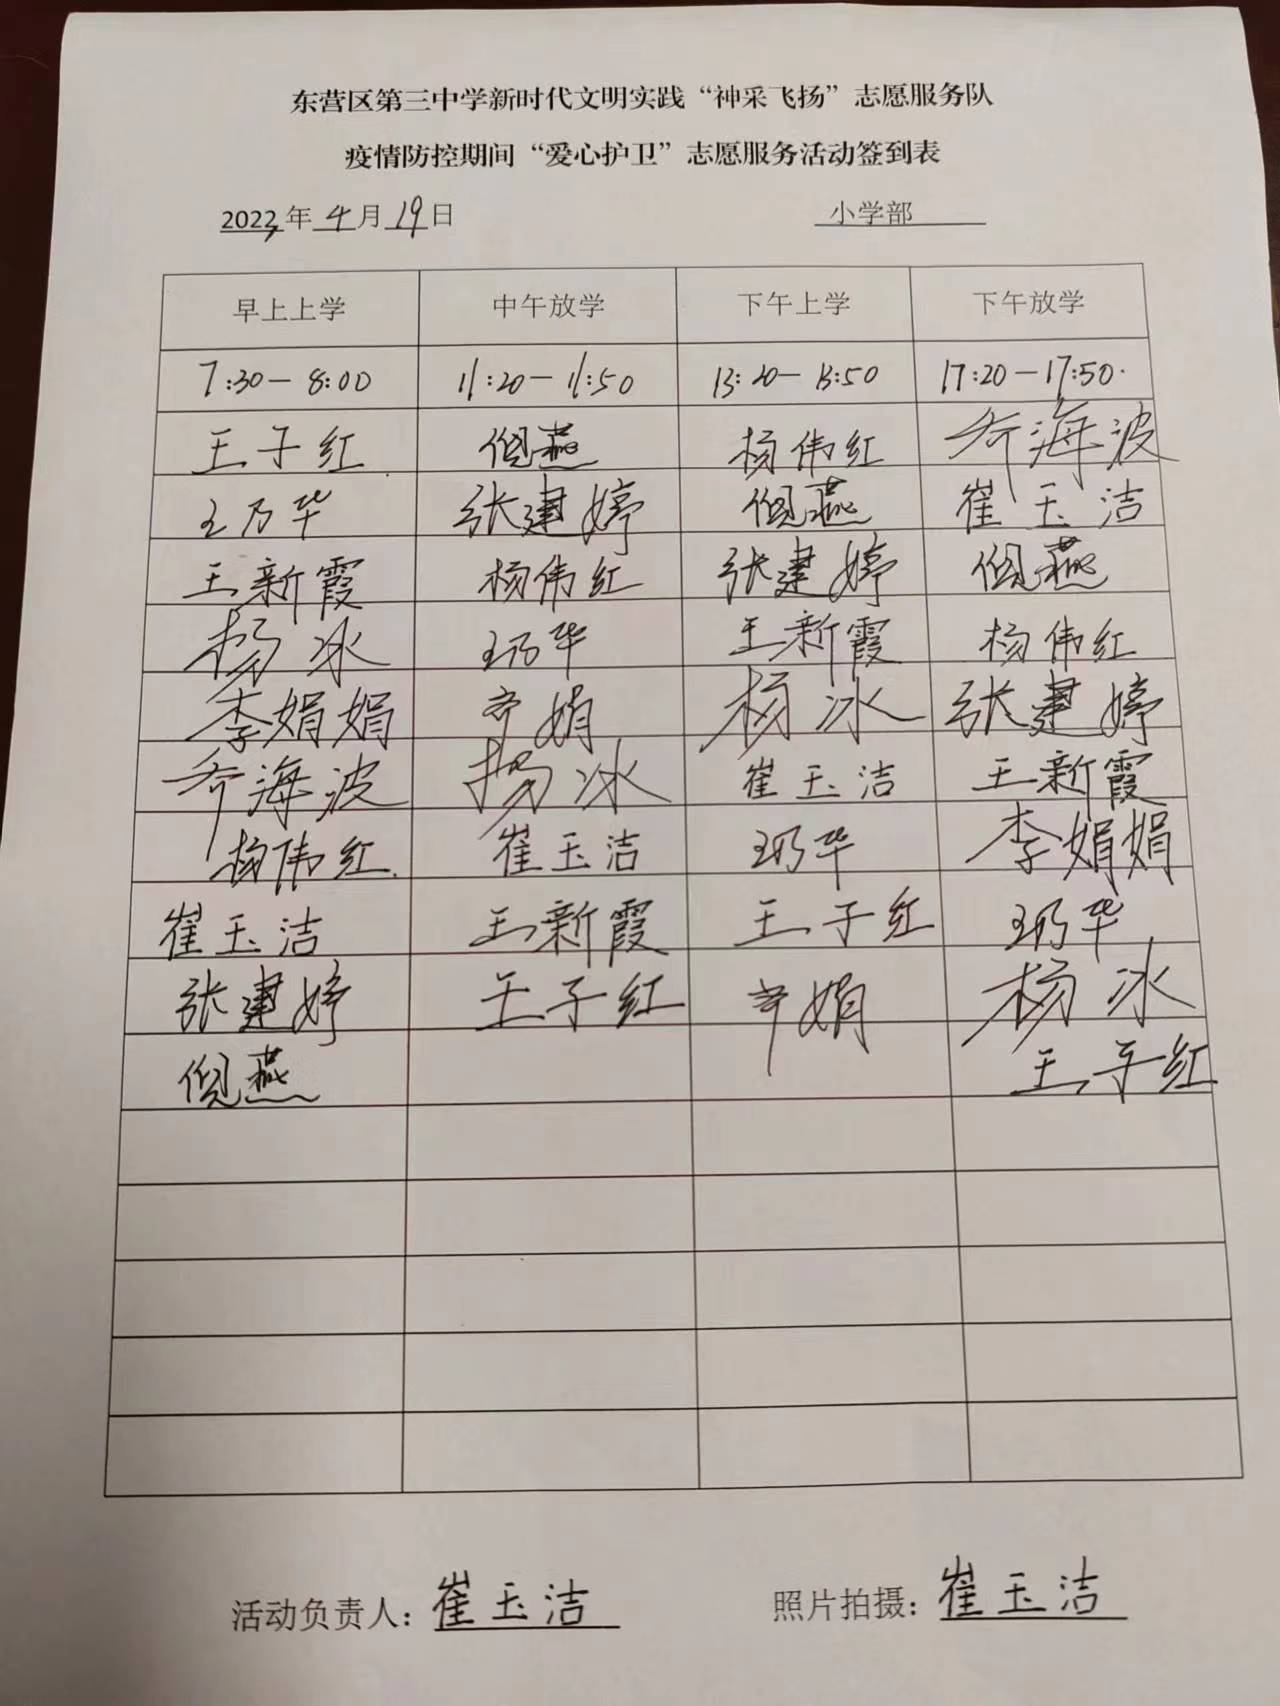 东营区第三中学新时代文明实践“神采飞扬”志愿服务队
疫情防控期间“爱心护卫”志愿服务活动签到表
2022年4月19日 小学部
早上上学 中午放学 下午上学 下午放学
7:30-8:00 11:20-11:50 13:20-13:50 17:20-17:50
王子红 倪燕 杨伟红 乔海波
王乃华 张建婷 倪燕 崔玉洁
王新霞 杨伟红 张建婷 倪燕
杨冰 王乃华 王新霞 杨伟红
李娟娟 李娟 杨冰 张建婷
乔海波 杨冰 崔玉洁 王新霞
杨伟红 崔玉洁 王乃华 李娟娟
崔玉洁 王新霞 王子红 王乃华
张建婷 王子红 李娟 杨冰
倪燕 王子红
活动负责人：崔玉洁 照片拍摄：崔玉洁